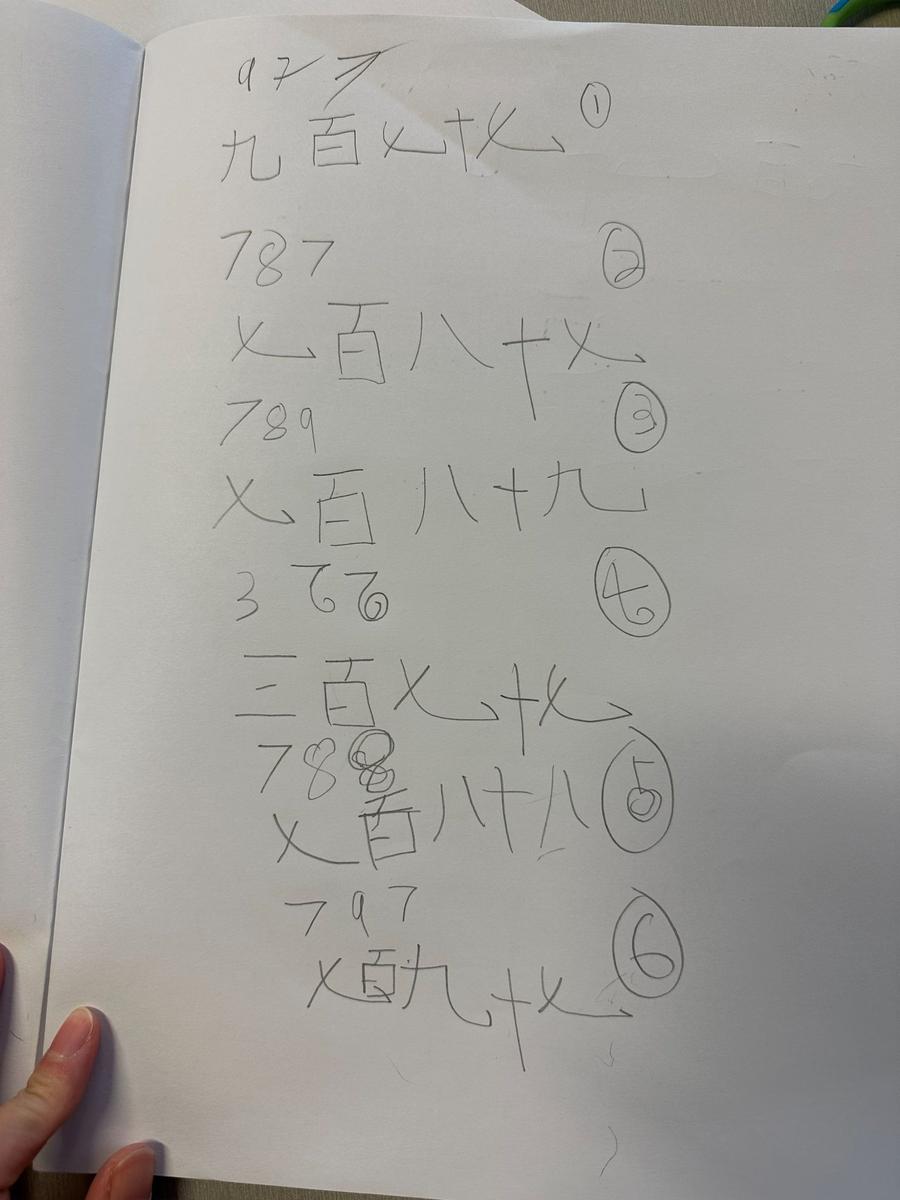 977
九百七十七 ①
787 ②
七百八十七
789 ③
七百八十九
355 ④
三百七十七
788 ⑤
七百八十八
797 ⑥
七百九十七